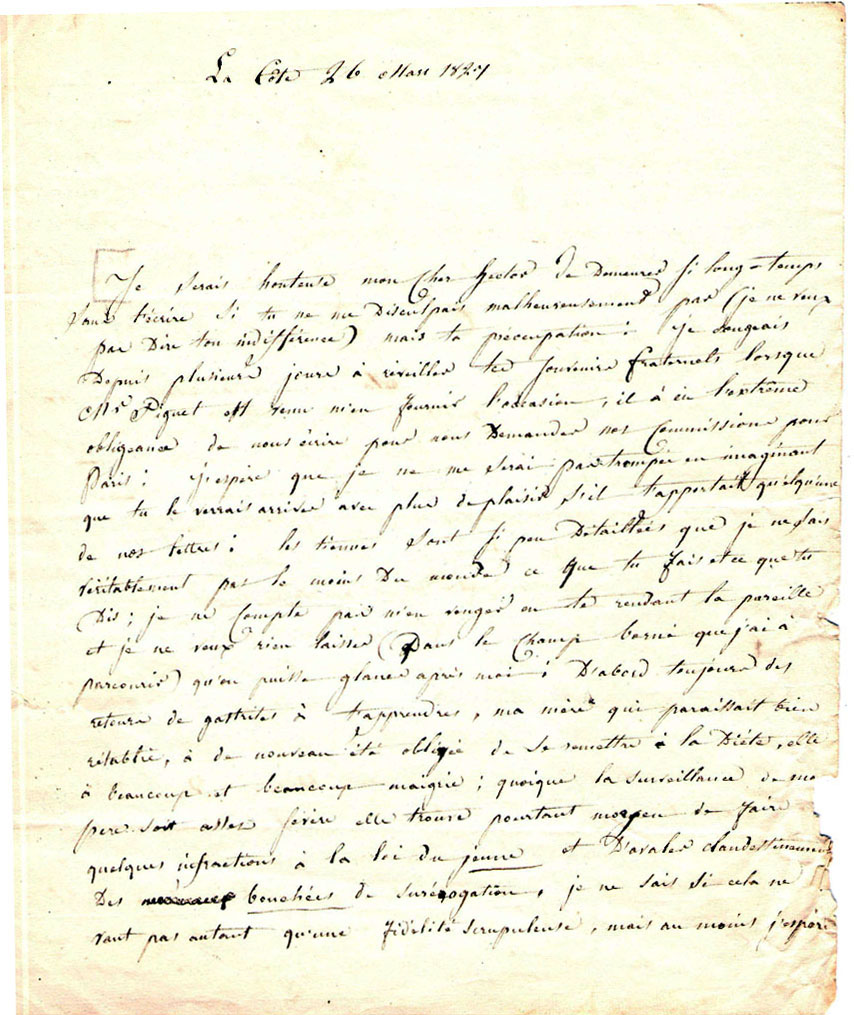 La Côte 26 Mars 1827
Je serais honteuse mon cher hector de demeurer si long-temps
sans t'écrire si tu ne me dispensais malheureusement par (je ne veux
pas dire ton indifférence) mais ta préocupation : je songeais
depuis plusieurs jours à réveiller tes souvenirs fraternels lorsque
Mr Piquet est venu m'en fournir l'occasion, il à eu l'extrême
obligeance de nous écrire pour nous demander nos commissions pour
Paris : j'espère que je ne me serai pas trompée en imaginant
que tu le verrais arriver avec plus de plaisir s'il t'apportait quelqu'une
de nos lettres : les tiennes sont si peu détaillées que je ne sais
véritablement pas le moins du monde ce que tu fais et ce que tu
dis ; je ne compte pas m'en venger en te rendant la pareille
et je ne veux rien laisser (dans le champ borné que j'ai à
parcourir) qu'on puisse glaner après moi ; d'abord toujours des
retours de gastrites à t'apprendres, ma mère qui paraissait bien
rétablie, à de nouveau été obligée de se remettre à la diéte, elle
à beaucoup et beaucoup maigrie ; quoique la surveillance de mo
pere soit assez sévère elle trouve pourtant moyen de faire
quelques infractions à la loi du jeune et d'avaler clandestinement
des bouchées de surérogation, je ne sais si cela ne
vaut pas autant qu'une fidélité scrupuleuse, mais au moins j'espère